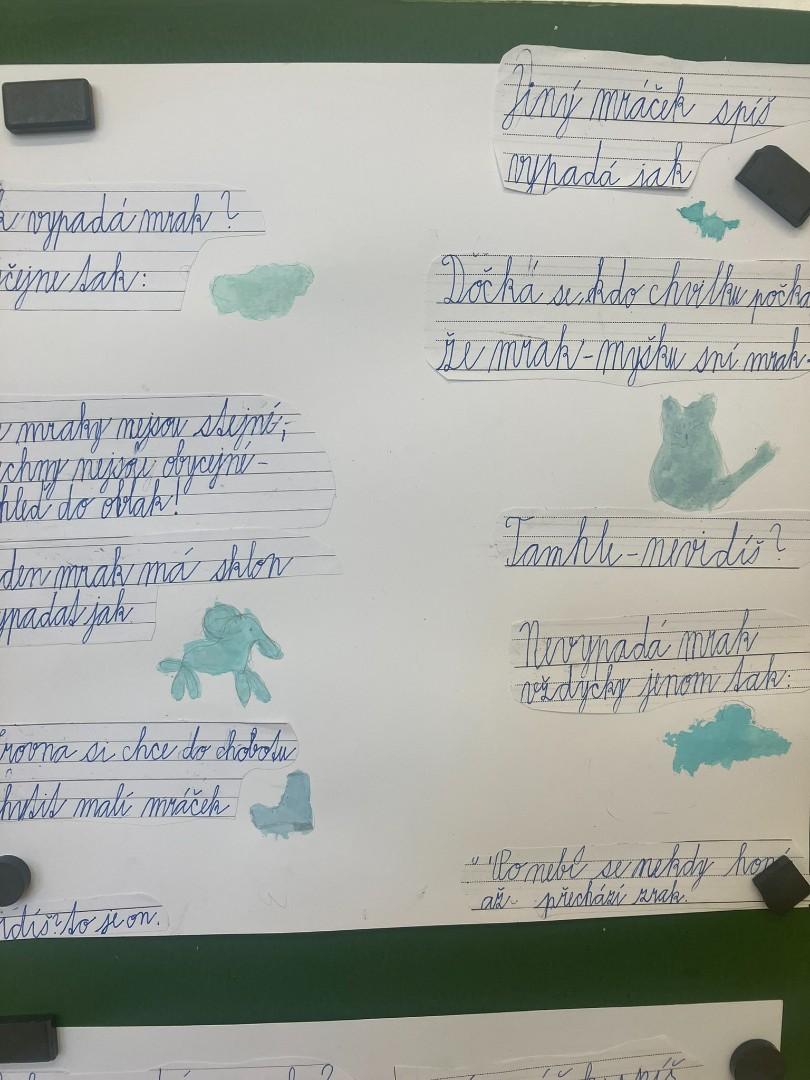 k vypadá mrak?
čejne tak:
mraky nejsou stejné;
echny nejsou obycejné-
hleď do oblak!
den mrak má sklon
ypadat jak
rovna si chce do chobotu
chytit malí mráček
idíš? to je on.
Jiný mráček spíš
vypadá jak
Dočká se, kdo chvilku počka
že mrak-myšku sní mrak-
Tamhle-nevidíš?
Nevypadá mrak
vždycky jenom tak:
Po nebi se nekdy honí
až přechází zrak.